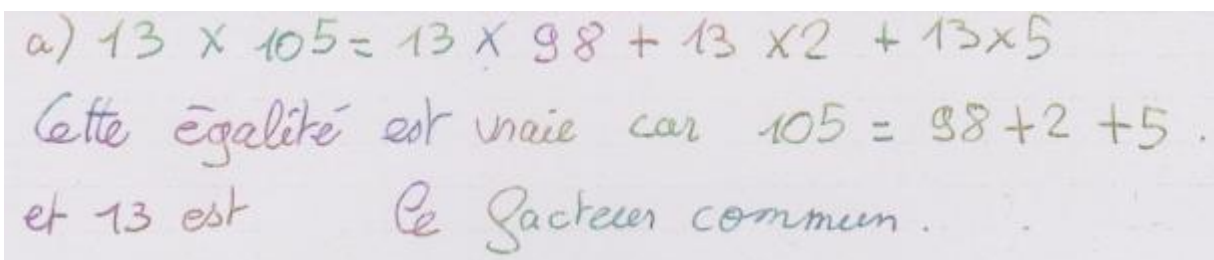 a) 13 × 105 = 13 × 98 + 13 × 2 + 13 × 5
Cette égalité est vraie car 105 = 98 + 2 + 5 .
et 13 est le facteur commun .